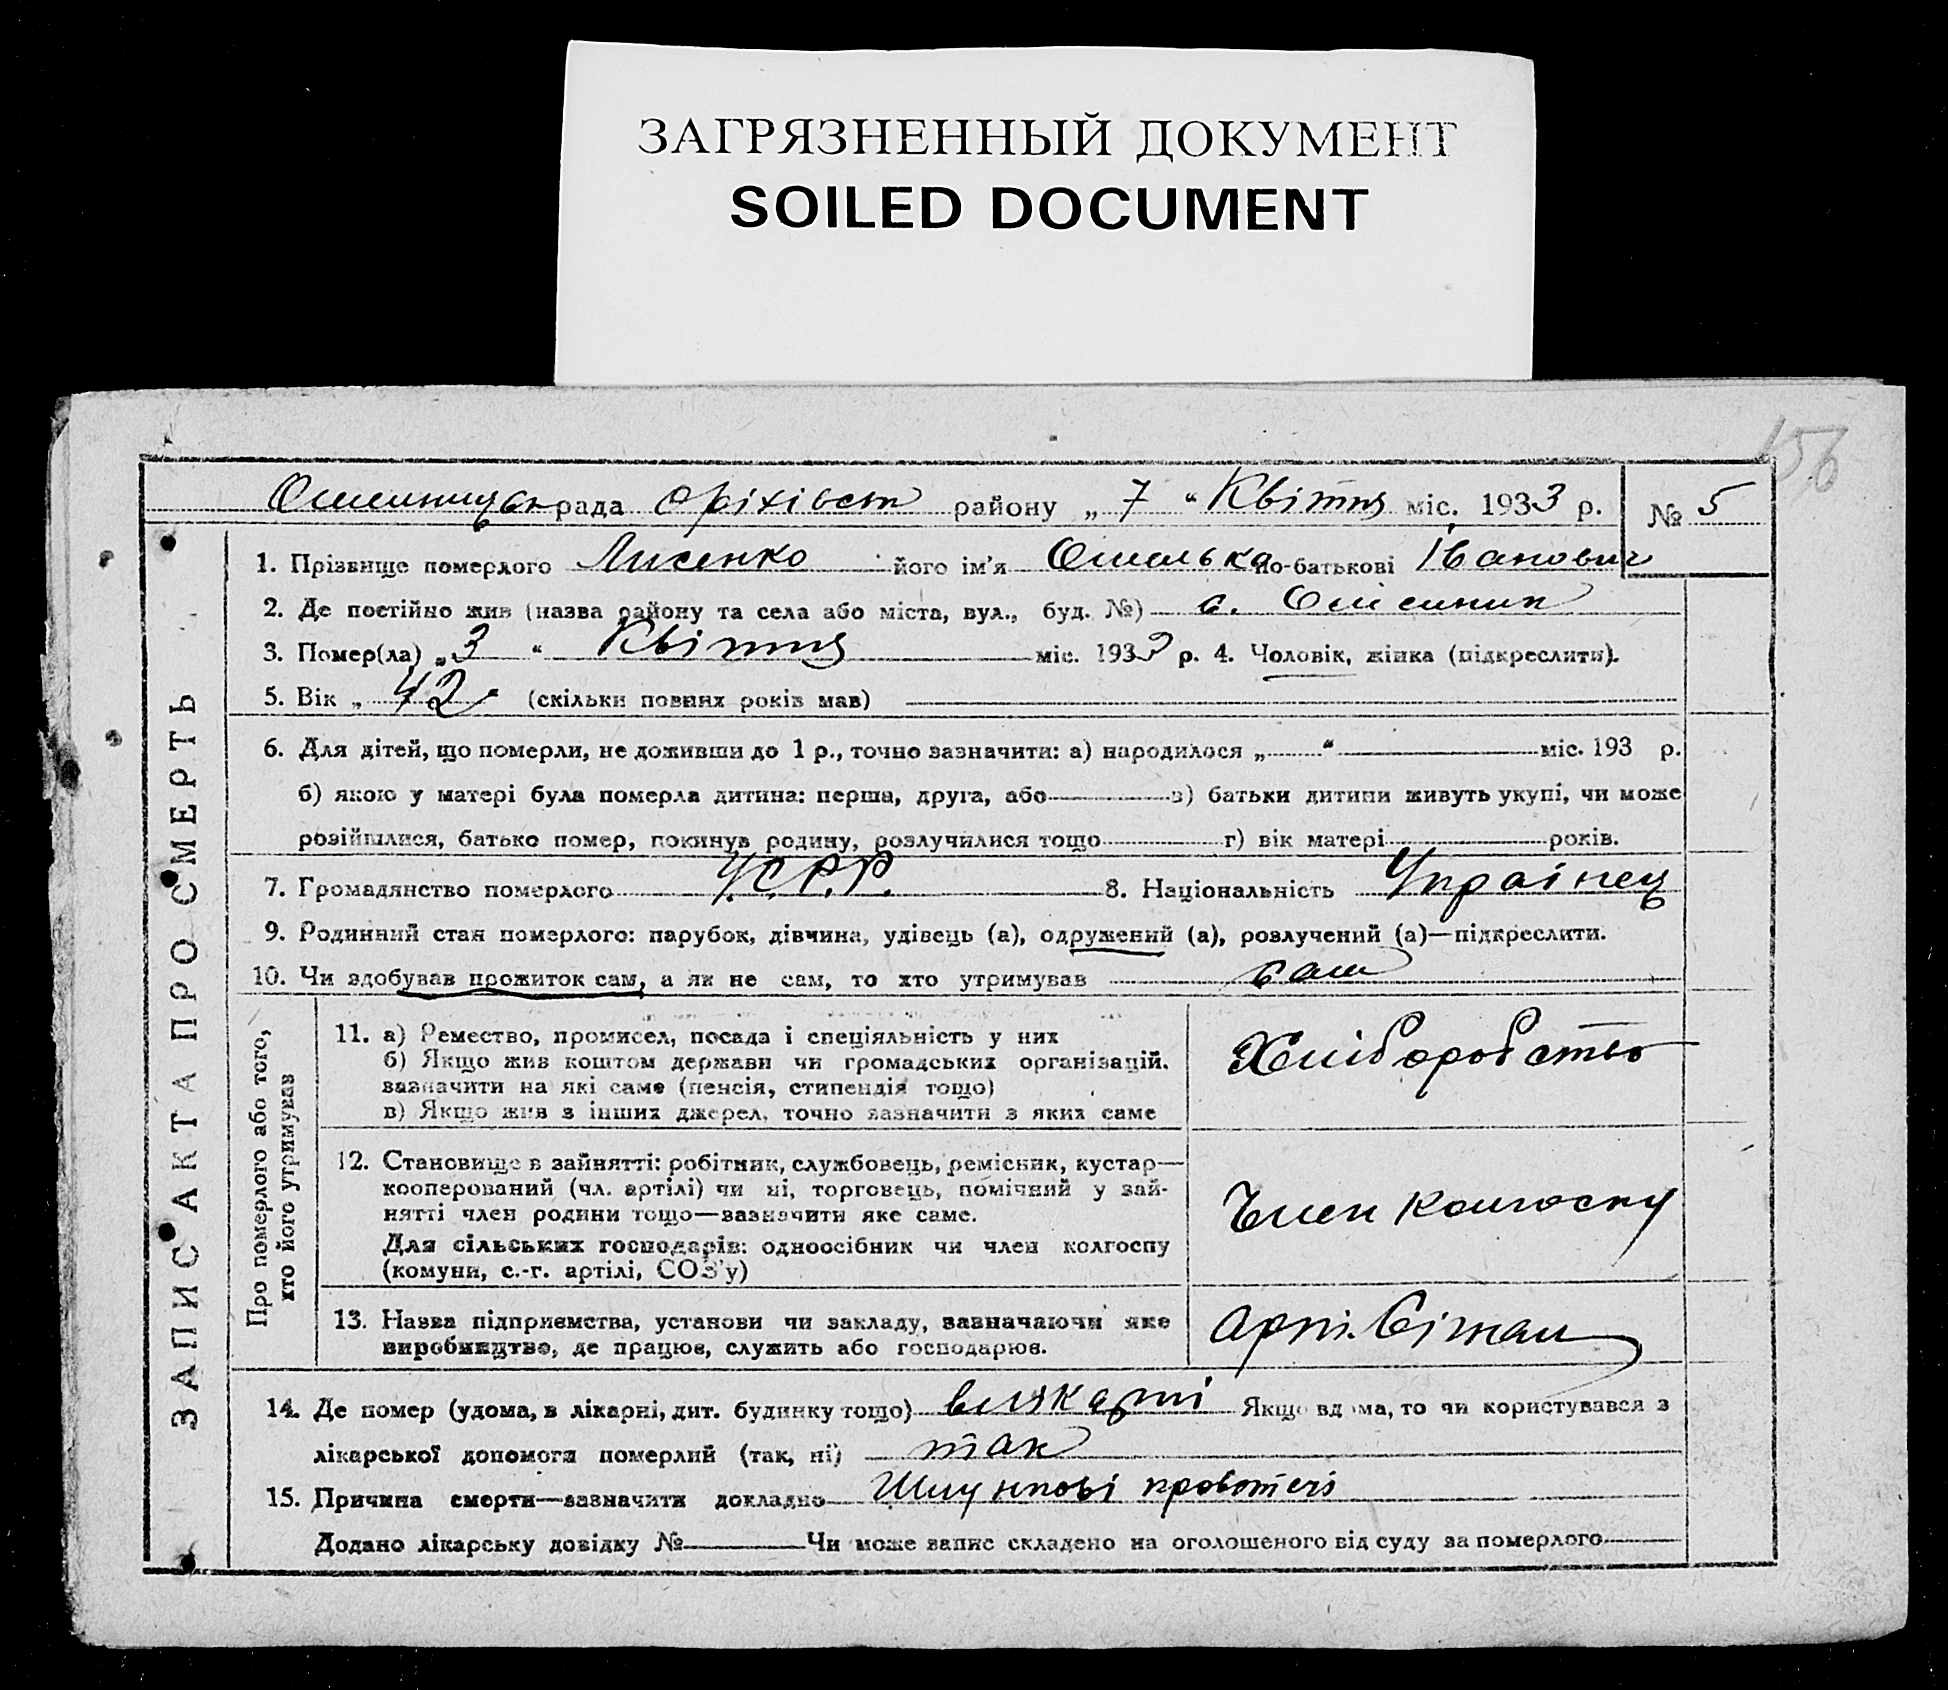 ЗАГРЯЗНЕННЫЙ ДОКУМЕНТ
SOILED DOCUMENT
156
рада Оріхівськ району „ 7 “ Квітня міс. 1933 р. № 5
ЗАПИС АКТА ПРО СМЕРТЬ
1. Прізвище померлого Лисенко його ім'я Омелько по-батькові Іванович
2. Де постійно жив (назва району та села або міста, вул., буд. №) с.
3. Помер(ла) „ 3 “ Квітня міс. 1933 р. 4. Чоловік, жінка (підкреслити).
5. Вік „ 42 “ (скільки повних років мав)
6. Для дітей, що померли, не доживши до 1 р., точно зазначити: а) народилося „ “ міс. 193 р.
б) якою у матері була померла дитина: перша, друга, або в) батьки дитини живуть укупі, чи може
розійшлися, батько помер, покинув родину, розлучилися тощо г) вік матері років.
7. Громадянство померлого У.С.Р.Р. 8. Національність Українець
9. Родинний стан померлого: парубок, дівчина, удівець (а), одружений (а), розлучений (а)—підкреслити.
10. Чи здобував прожиток сам, а як не сам, то хто утримував сам
Про померлого або того,
хто його утримував
11. а) Ремество, промисел, посада і спеціяльність у них
б) Якщо жив коштом держави чи громадських організацій,
зазначити на які саме (пенсія, стипендія тощо)
в) Якщо жив з інших джерел, точно зазначити з яких саме
Хліборобство
12. Становище в зайнятті: робітник, службовець, ремісник, кустар—
кооперований (чл. артілі) чи ні, торговець, помічний у зай-
нятті член родини тощо—зазначити яке саме.
Для сільських господарів: одноосібник чи член колгоспу
(комуни, с.-г. артілі, СОЗ'у)
Член колгоспу
13. Назва підприємства, установи чи закладу, зазначаючи яке
виробництво, де працює, служить або господарює.
14. Де помер (удома, в лікарні, дит. будинку тощо) Якщо вдома, то чи користувався з
лікарської допомоги померлий (так, ні) так
15. Причина смерти—зазначити докладно Шлункові
Додано лікарську довідку № Чи може запис складено на оголошеного від суду за померлого